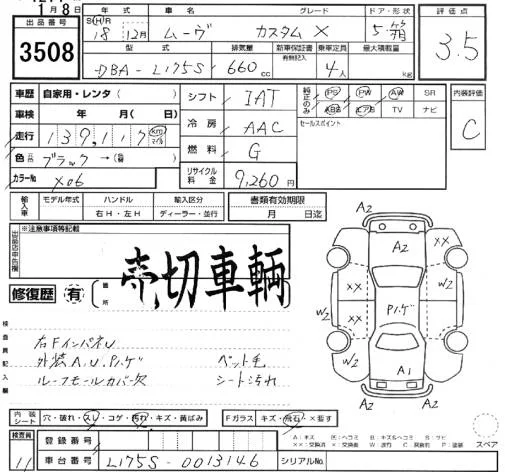 1月8日
出品番号 年式 車名 グレード ドア・形状 評価点
3508
S(H)R 18 12月 ムーヴ カスタム X 5 箱 3.5
型式 排気量 新車保証書 乗車定員 最大積載量
有無記入
DBA-L175S 660cc 4人 kg
車歴 自家用・レンタ( ) シフト IAT 純正のみ PS PW AW SR 内装評価
車検 年 月( 日) ABS エアB TV ナビ
冷房 AAC セールスポイント C
走行 139,117 km マイル
燃料 G
色 ブラック→( )
リサイクル料金 9,260円
カラーNo X06
輸入車 モデル年式 ハンドル 輸入区分 書類有効期限
右H・左H ディーラー・並行 月 日迄
※注意事項等記載
出品店申告欄
売切車輌
修復歴 有 箇所
検査員記入欄
右FインパネU
外装A.U.Pハゲ ペット毛
ルーフモールカバー欠 シート汚れ
A2 A2 XX XX XX W2 W2 W2 W2 Pハゲ A1 A2 A2
内装シート 穴・破れ・スレ・コゲ・汚れ・キズ・黄ばみ Fガラス キズ・飛石・X要す
検査員 11 登録番号
車台番号 L175S-0013146 シリアルNo. スペア